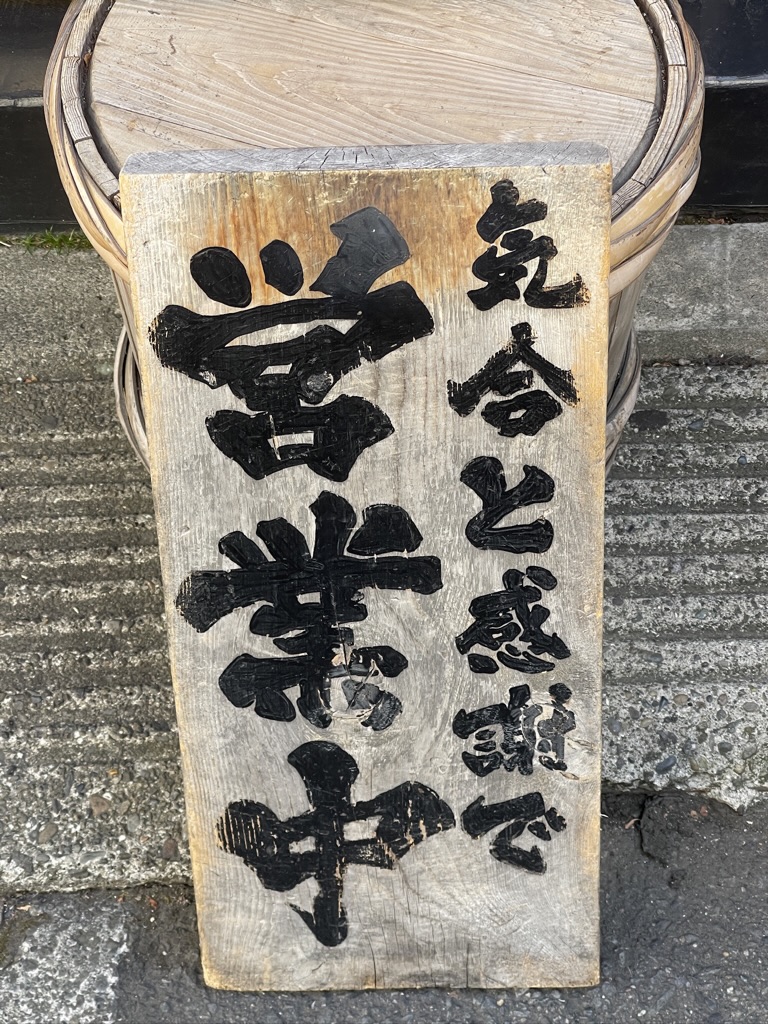 気合と感謝で
営業中